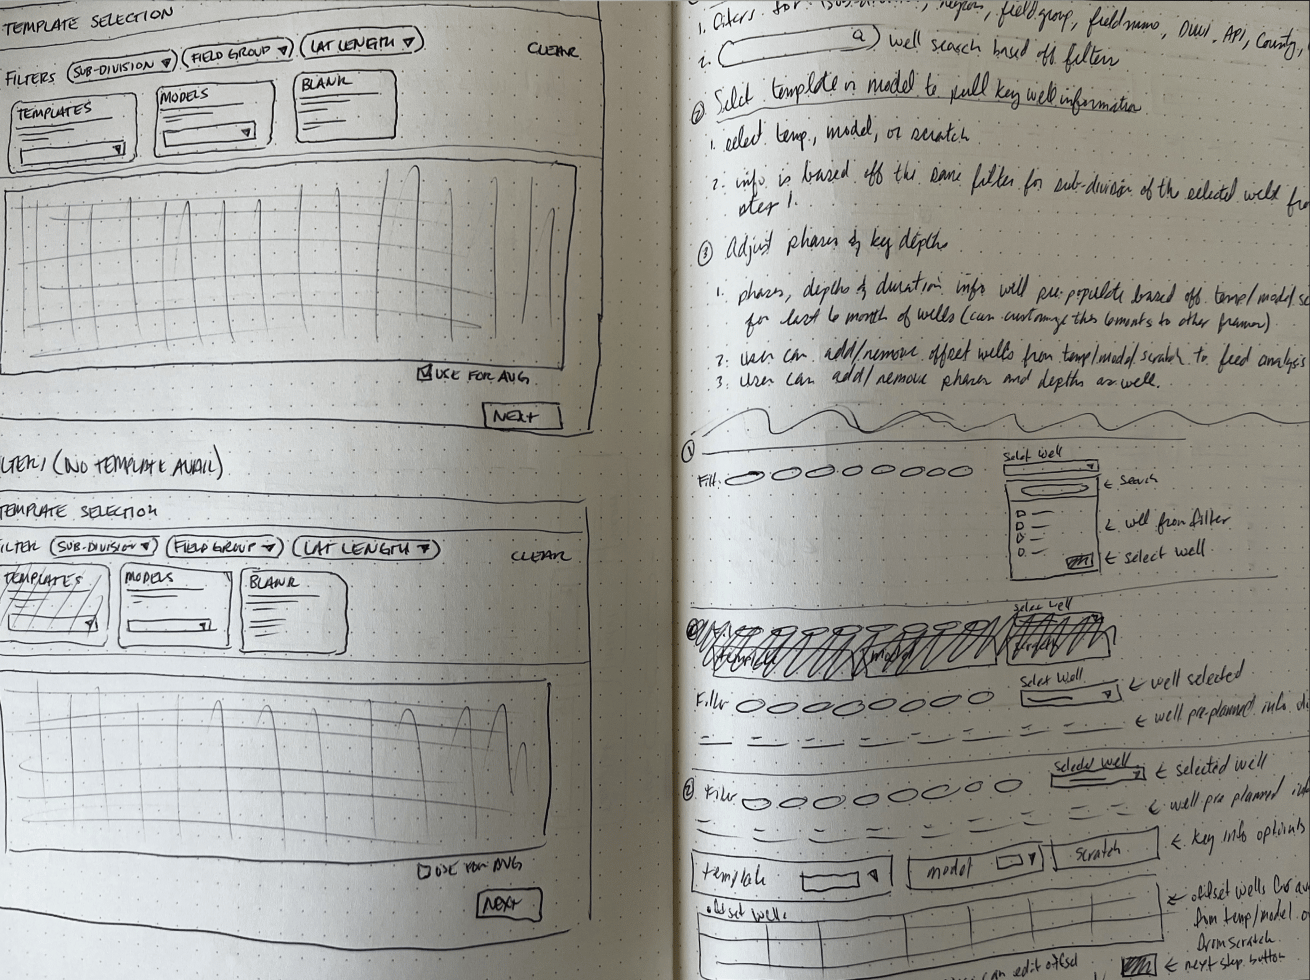 TEMPLATE SELECTION
FILTERS SUB-DIVISION FIELD GROUP LAT LENGTH CLEAR
TEMPLATES
MODELS
BLANK
USE FOR AVG
NEXT
(NO TEMPLATE AVAIL)
TEMPLATE SELECTION
FILTER SUB-DIVISION FIELD GROUP LAT LENGTH CLEAR
TEMPLATES
MODELS
BLANK
USE FOR AVG
NEXT
1. filters for (sub-division, region, field group, field name, API, County,
2. Q well search based off filters
② Select template or model to pull key well information
1. select temp., model, or scratch
2. info is based off the same filter for sub-division of the selected well from
step 1.
③ Adjust phases & key depths
1. phases, depths & duration info will pre-populate based off temp/model/sc
for last 6 month of wells (can customize this 6 months to other frames)
2. user can add/remove offset wells from temp/model/scratch to feed analysis
3. User can add/remove phases and depths as well.
①
Filt. Select Well
← Search
← well from filter
← select well
Select Well
Filter Select Well ← well selected
← well pre-planned info
② Filter Selected Well ← selected well
← well pre planned
← key info options
template model scratch
offset wells ← offset wells
from temp/model or
from scratch.
can edit offset
← next step button